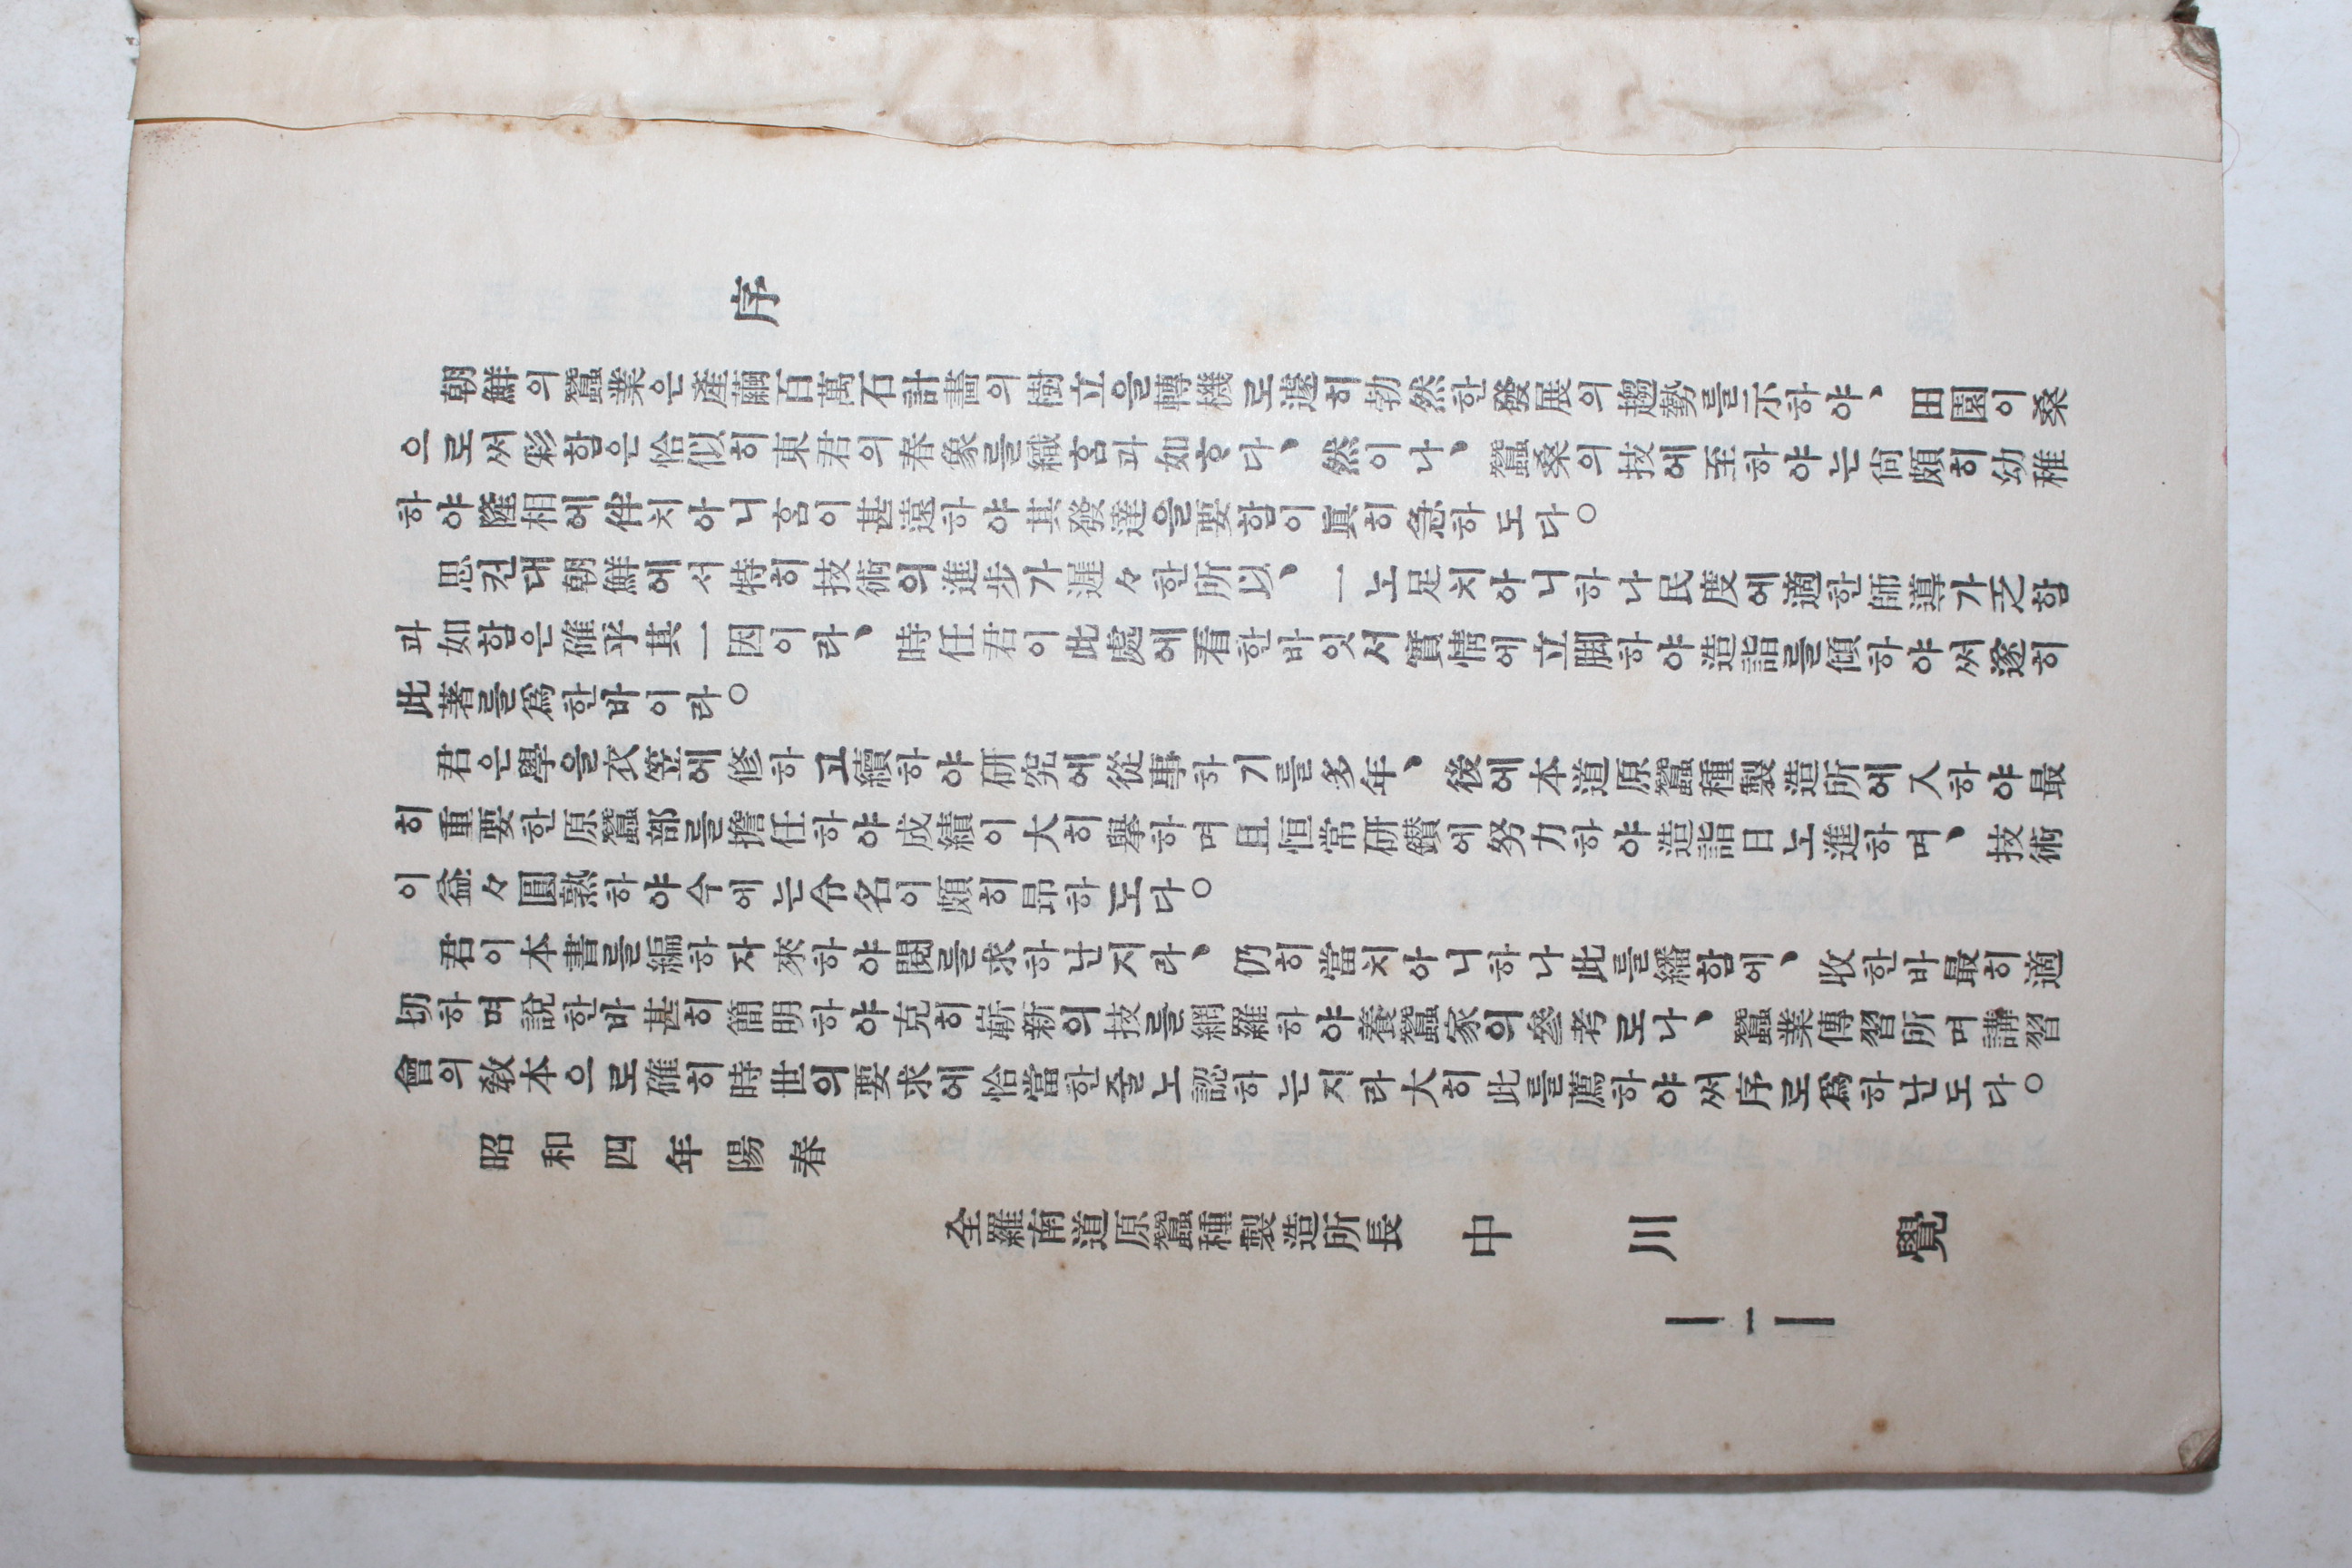 序
朝鮮의蠶業은產繭百萬石計畫의樹立을轉機로遽히勃然한發展의趨勢를示하야、田園이桑
으로써彩함은恰似히東君의春象를織홈과如흐다、然이나、蠶桑의技에至하야는尙頗히幼稚
하야隆相에伴치아니홈이甚遠하야其發達을要함이眞히急하도다。
思컨대朝鮮에서特히技術의進步가遲々한所以、一노足치아니하나民度에適한師導가乏함
과如함은確乎其一因이라、時任君이此處에看한바잇서實情에立脚하야造詣를傾하야써遂히
此著를爲한바이라。
君은學을衣笠에修하고續하야硏究에從事하기를多年、後에本道原蠶種製造所에入하야最
히重要한原蠶部를擔任하야成績이大히擧하며且恒常硏鑚에努力하야造詣日노進하며、技術
이益々圓熟하야今에는令名이頗히昂하도다。
君이本書를編하자來하야閱를求하난지라、仍히當치아니하나此를繙함에、收한바最히適
切하며說한바甚히簡明하야克히嶄新의技를網羅하야養蠶家의參考로나、蠶業傳習所며講習
會의敎本으로確히時世의要求에恰當한줄노認하는지라大히此를薦하야써序로爲하난도다。
昭和四年陽春
全羅南道原蠶種製造所長 中川 覺
—一—